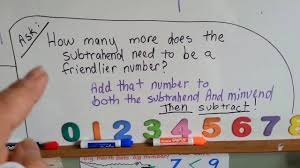 Ask:
How many more does the
subtrahend need to be a
friendlier number?
Add that number to
both the subtrahend And minuend
Then subtract!
0 1 2 3 4 5 6 7 8 9